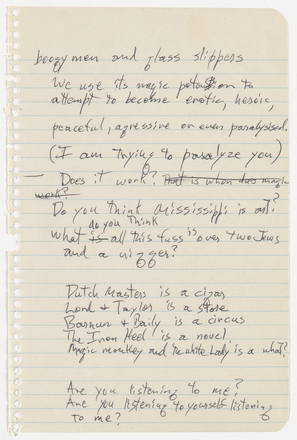 boogy men and glass slippers
We use its magic to
attempt to become erotic, heroic,
peaceful, agressive or even paralysised.
(I am trying to paralyze you)
— Does it work? That is when does magic
work?
Do you think Mississippi is art?
do you think
What is all this fuss is over two Jews
and a nigger?
Dutch Masters is a cigar
Lord & Taylor is a store
Barnum & Baily is a circus
The Iron Heel is a novel
Magic monkey and the white lady is a what?
Are you listening to me?
Are you listening to yourself listening
to me?